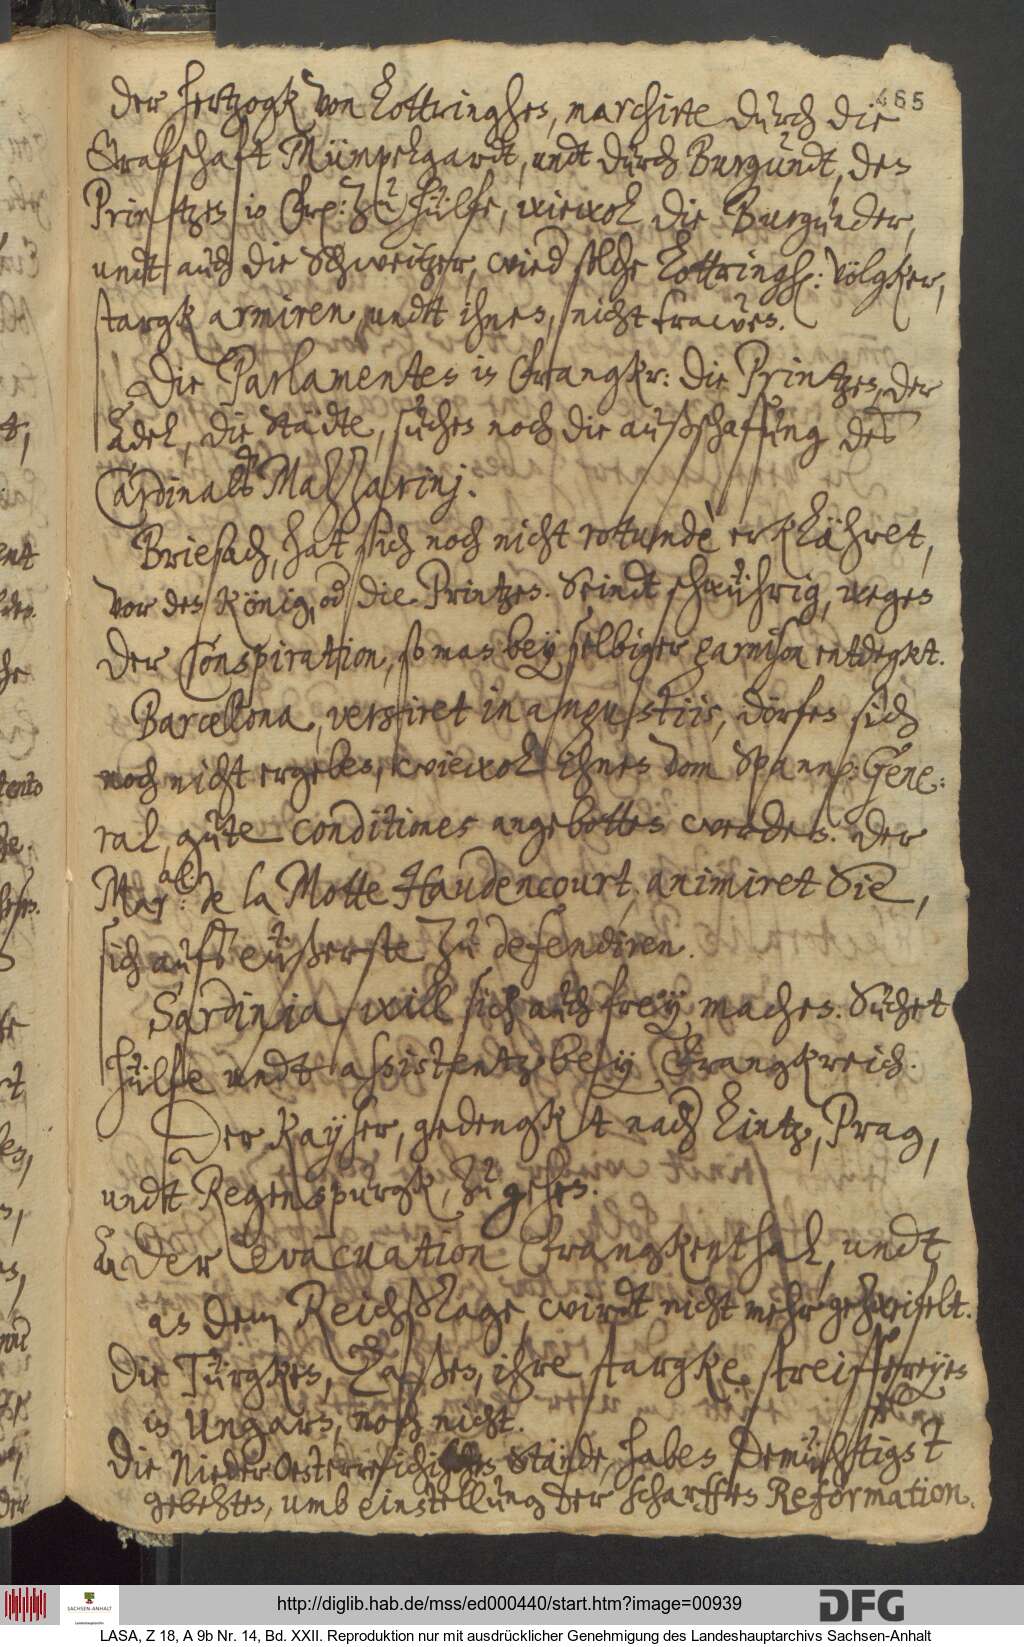 465
Der Hertzogk von Lottringhen, marchirte durch die
Grafschaft Mümpelgardt, undt durch Burgundt, den
Printzen in Fra: zu hülfe, wiewol die Burgunder,
undt auch die Schweitzer, wied solche Lottringh: Völgker,
stargk armiren, undt ihnen, nicht trawen.
Die Parlamenten in Frangkr: die Printzen, der
Adel, die Städte, suchen noch die außschaffung des
Cardinals de Mazzarinj.
Briesach, hat sich noch nicht rotundè erklähret,
vor den König, od die Printzen. Seindt schwührig, wegen
der Conspiration, so man bey selbiger garnison entdegkt.
Barcellona, versiret in angustiis, dörfen sich
noch nicht ergeben, wiewol Ihnen vom Spannp: Gene:
ral, gute conditiones angebotten werden. Der
Mar:al de la Motte Haudencourt, animiret Sie,
sich aufs eüßerste zu defendiren.
Sardinia, will sich auch frey machen. Suchet
hülfe undt assistentz bey Frangkreich.
Der Kayser, gedengkt nach Lintz, Prag,
undt Regenspurgk, zu gehen.
An der Evacuation Frangkenthal, undt
an dem Reichßtage, wirdt nicht mehr gezweifelt.
Die Türgken, laßen, ihre stargke streiffereyen
in Ungarn, noch nicht.
Die NiederOesterreichischen Stände, haben Demühtigst
gebehten, umb einstellung der scharffen Reformation.
http://diglib.hab.de/mss/ed000440/start.htm?image=00939
SACHSEN-ANHALT
DFG
LASA, Z 18, A 9b Nr. 14, Bd. XXII. Reproduktion nur mit ausdrücklicher Genehmigung des Landeshauptarchivs Sachsen-Anhalt